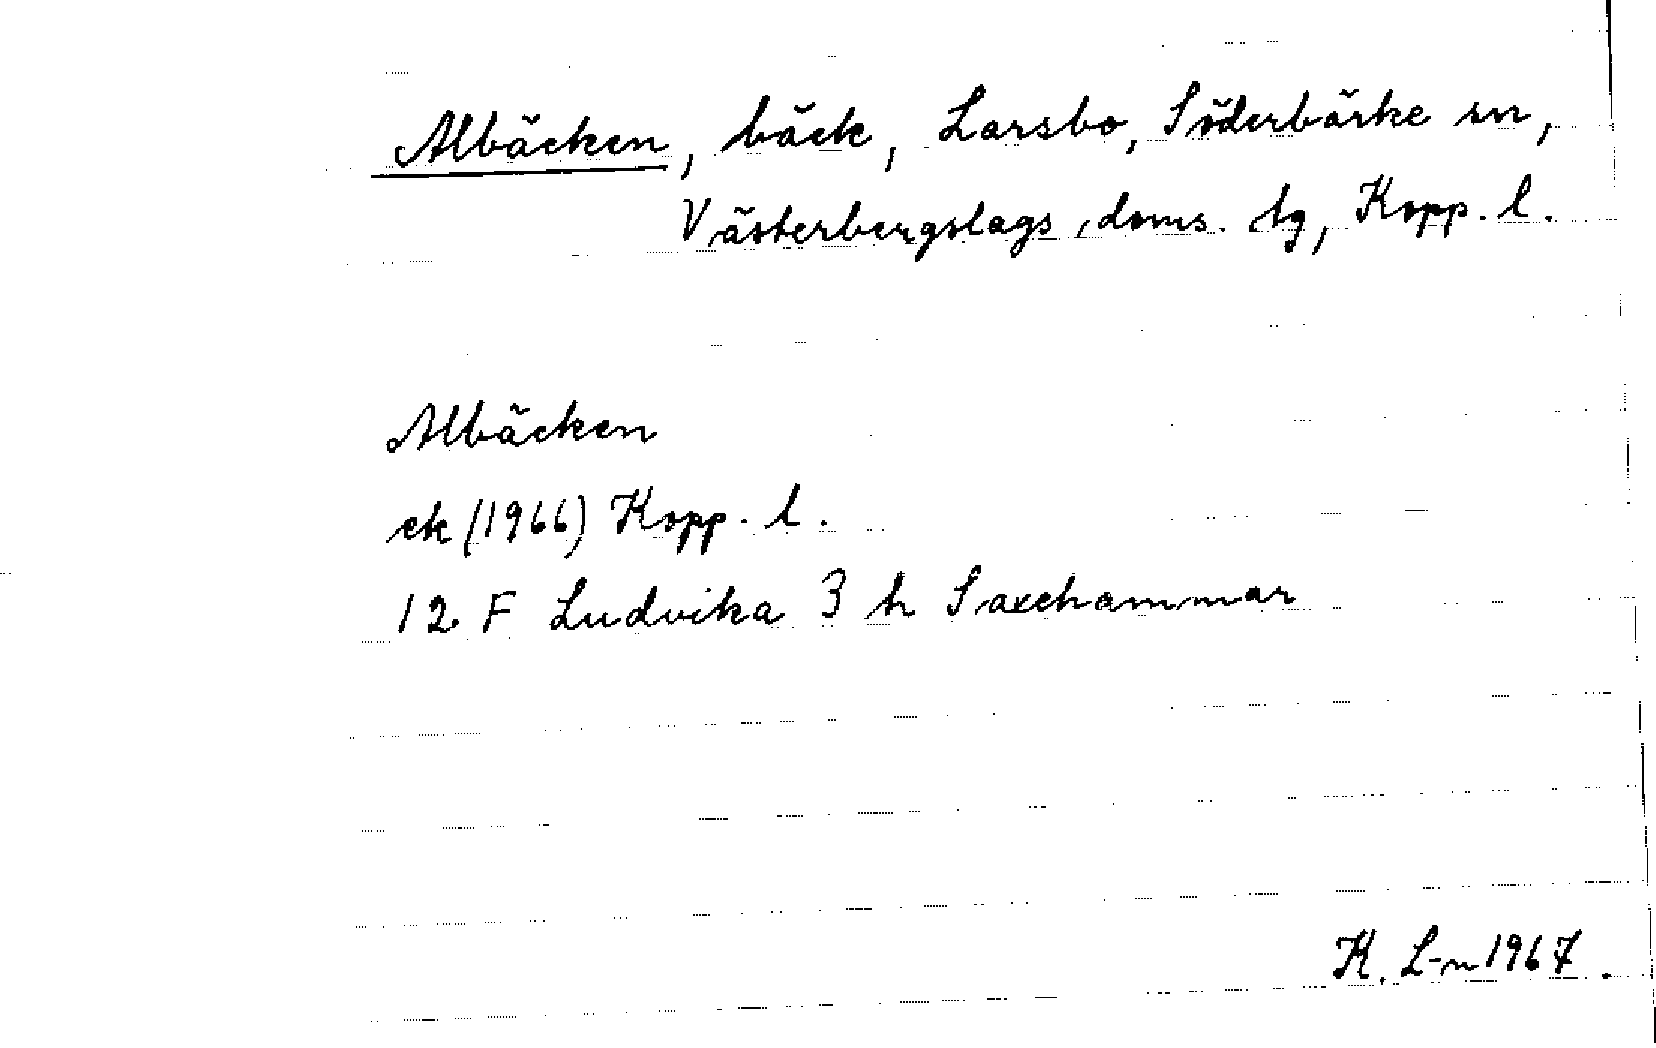 Albäcken, bäck, Larsbo, Söderbärke sn,
Västerbergslags doms. tg, Kopp. l.
Albäcken
ek (1966) Kopp. l.
12 F Ludvika 3 h Saxehammar
K. L-n 1967.